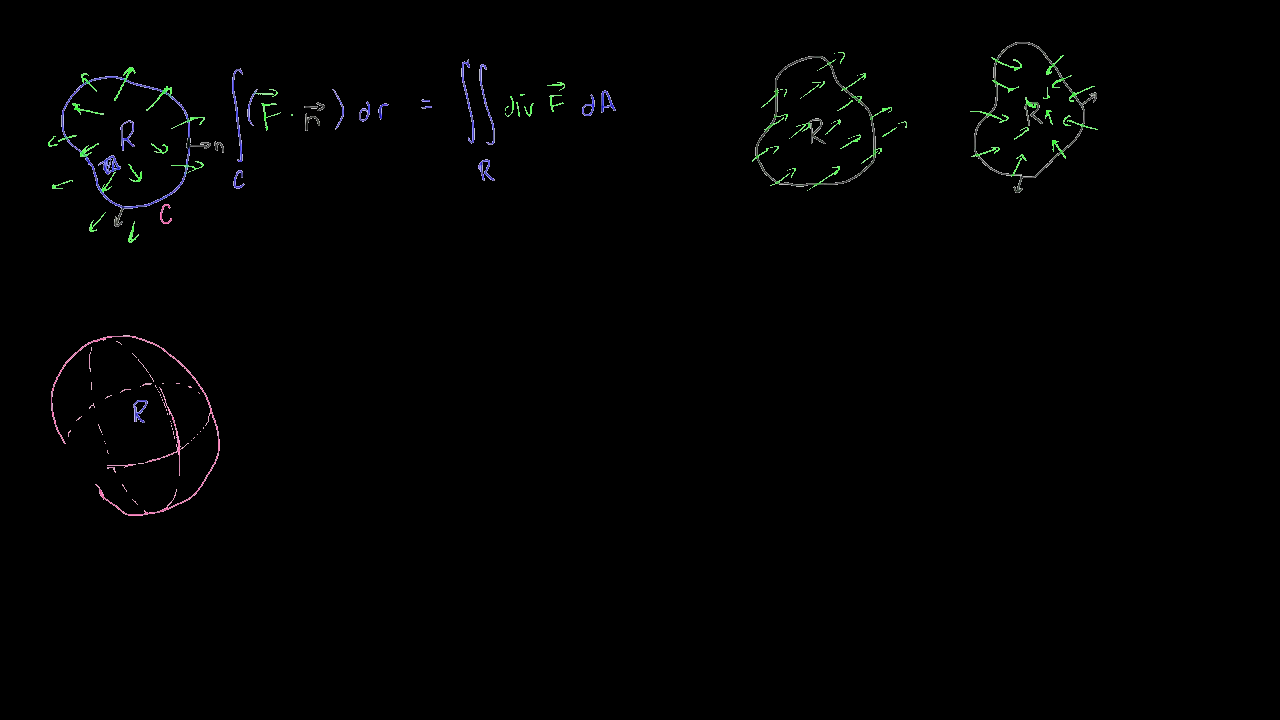 R
n
C
∫_C (F⃗ · n⃗) dr = ∬_R div F⃗ dA
R
R
R